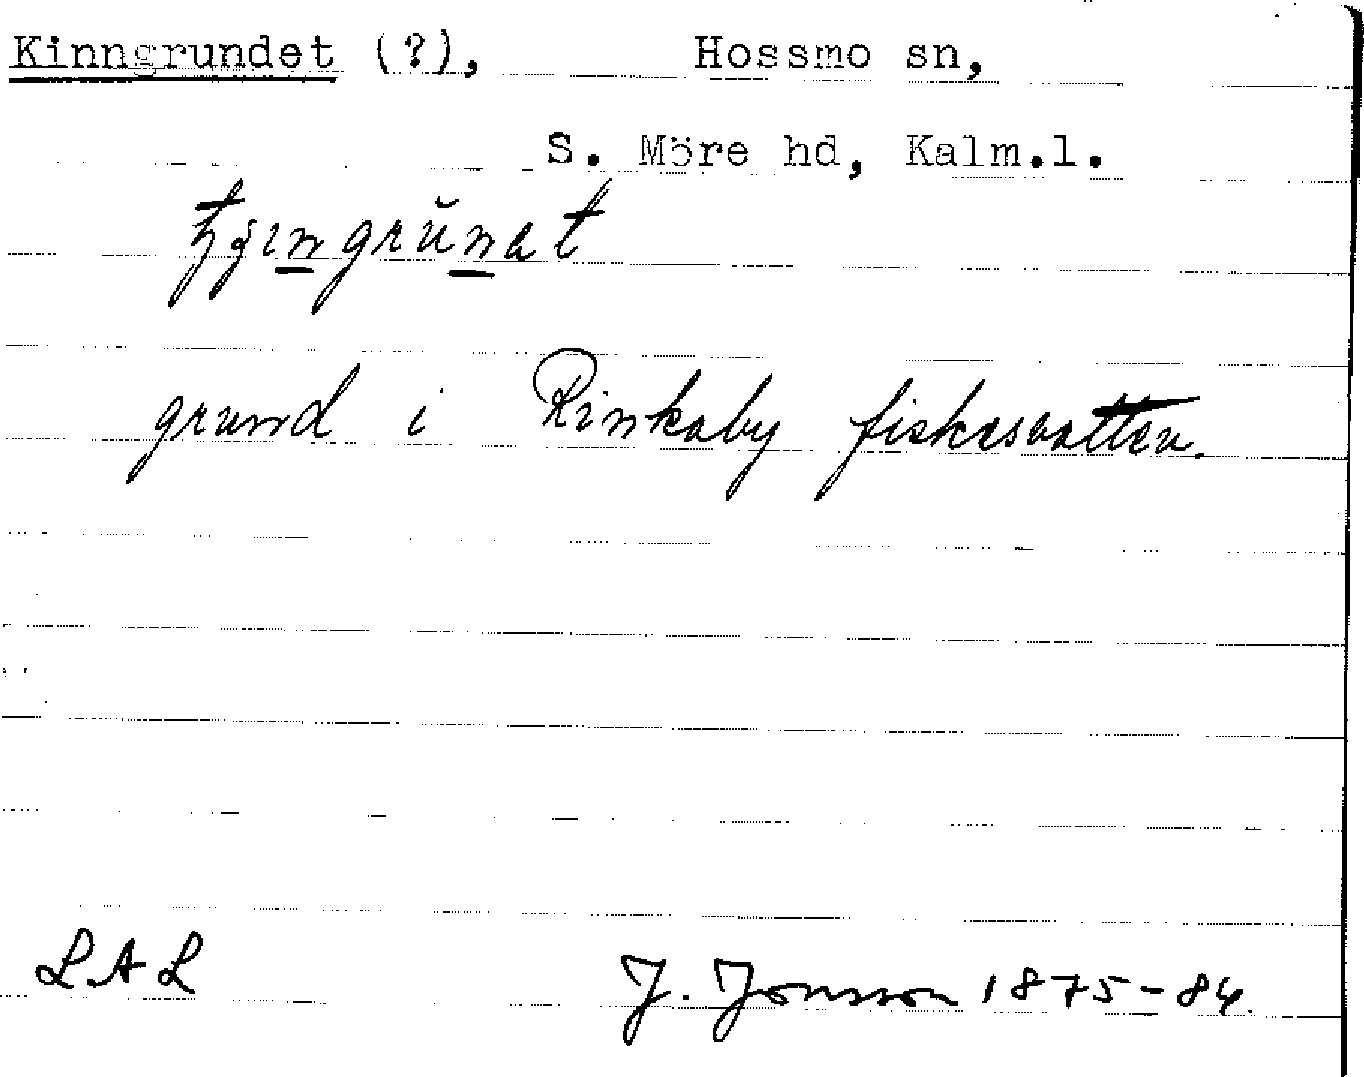 Kinngrundet (?), Hossmo sn,
S. Möre hd, Kalm.l.
grund i Rinkaby fiskesvatten.
LAL J. Jonsson 1875-84.